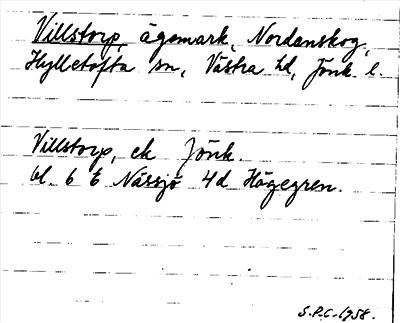 Villstorp, ägomark, Nordanskog,
Hylletofta sn, Västra hd, Jönk. l.
Villstorp, ek Jönk.
bl. 6 E Nässjö 4d Högegren.
S.P.C. 1958.